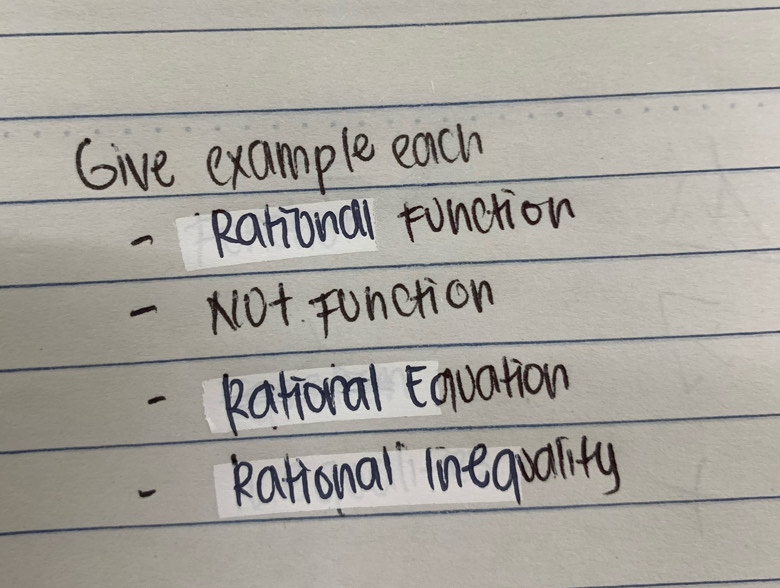 Give example each
- Rational Function
- Not Function
- Rational Equation
- Rational Inequality